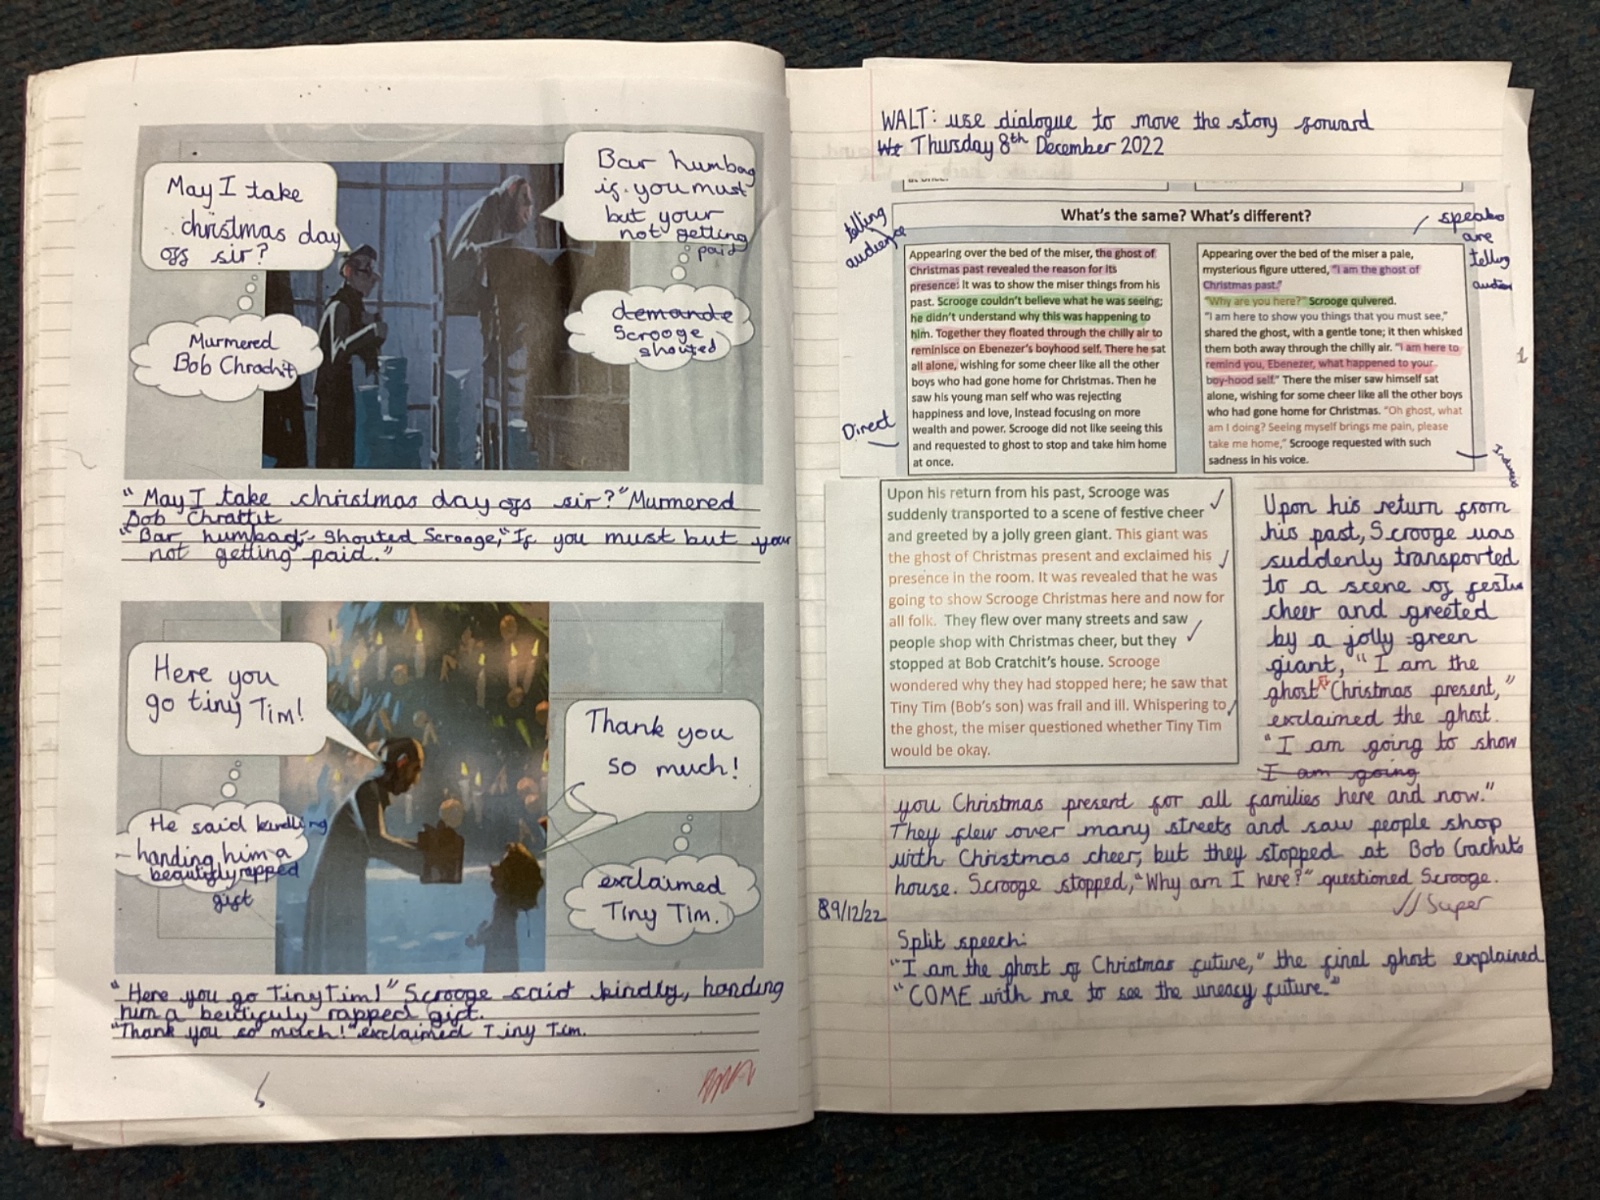 May I take
christmas day
off sir?
Bar humbag
if you must
but your
not getting
paid
Murmered
Bob Chrachit
demande
Scrooge
shouted
"May I take christmas day off sir?" Murmered
Bob Chrattit
"Bar, humbag," Shouted Scrooge, "If you must but your
not getting paid."
Here you
go tiny Tim!
Thank you
so much!
He said kindling
handing him a
beautifly rapped
gift
exclaimed
Tiny Tim.
"Here you go Tiny Tim!" Scrooge said kindly, handing
him a beutifuly rapped gift.
"Thank you so much!" exclaimed Tiny Tim.
WALT: use dialogue to move the story forward
Thursday 8th December 2022
What's the same? What's different?
telling
audience
Direct
Appearing over the bed of the miser, the ghost of
Christmas past revealed the reason for its
presence: It was to show the miser things from his
past. Scrooge couldn't believe what he was seeing;
he didn't understand why this was happening to
him. Together they floated through the chilly air to
reminisce on Ebenezer's boyhood self. There he sat
all alone, wishing for some cheer like all the other
boys who had gone home for Christmas. Then he
saw his young man self who was rejecting
happiness and love, instead focusing on more
wealth and power. Scrooge did not like seeing this
and requested to ghost to stop and take him home
at once.
Appearing over the bed of the miser a pale,
mysterious figure uttered, "I am the ghost of
Christmas past."
"Why are you here?" Scrooge quivered.
"I am here to show you things that you must see,"
shared the ghost, with a gentle tone; it then whisked
them both away through the chilly air. "I am here to
remind you, Ebenezer, what happened to your
boy-hood self." There the miser saw himself sat
alone, wishing for some cheer like all the other boys
who had gone home for Christmas. "Oh ghost, what
am I doing? Seeing myself brings me pain, please
take me home," Scrooge requested with such
sadness in his voice.
speaks
are
telling
Upon his return from his past, Scrooge was
suddenly transported to a scene of festive cheer
and greeted by a jolly green giant. This giant was
the ghost of Christmas present and exclaimed his
presence in the room. It was revealed that he was
going to show Scrooge Christmas here and now for
all folk. They flew over many streets and saw
people shop with Christmas cheer, but they
stopped at Bob Cratchit's house. Scrooge
wondered why they had stopped here; he saw that
Tiny Tim (Bob's son) was frail and ill. Whispering to
the ghost, the miser questioned whether Tiny Tim
would be okay.
Upon his return from
his past, Scrooge was
suddenly transported
to a scene of festive
cheer and greeted
by a jolly green
giant, "I am the
ghost Christmas present,"
exclaimed the ghost.
"I am going to show
I am going
you Christmas present for all families here and now."
They flew over many streets and saw people shop
with Christmas cheer, but they stopped at Bob Crachit's
house. Scrooge stopped, "Why am I here?" questioned Scrooge.
Super
9/12/22
Split speech:
"I am the ghost of Christmas future," the final ghost explained
"COME with me to see the uneasy future."